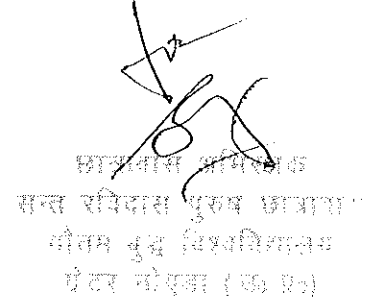 छात्रावास अभिरक्षक
सन्त रविदास पुरुष छात्रावा
गौतम बुद्ध विश्वविद्यालय
ग्रेटर नोएडा ( उ० प्र०)